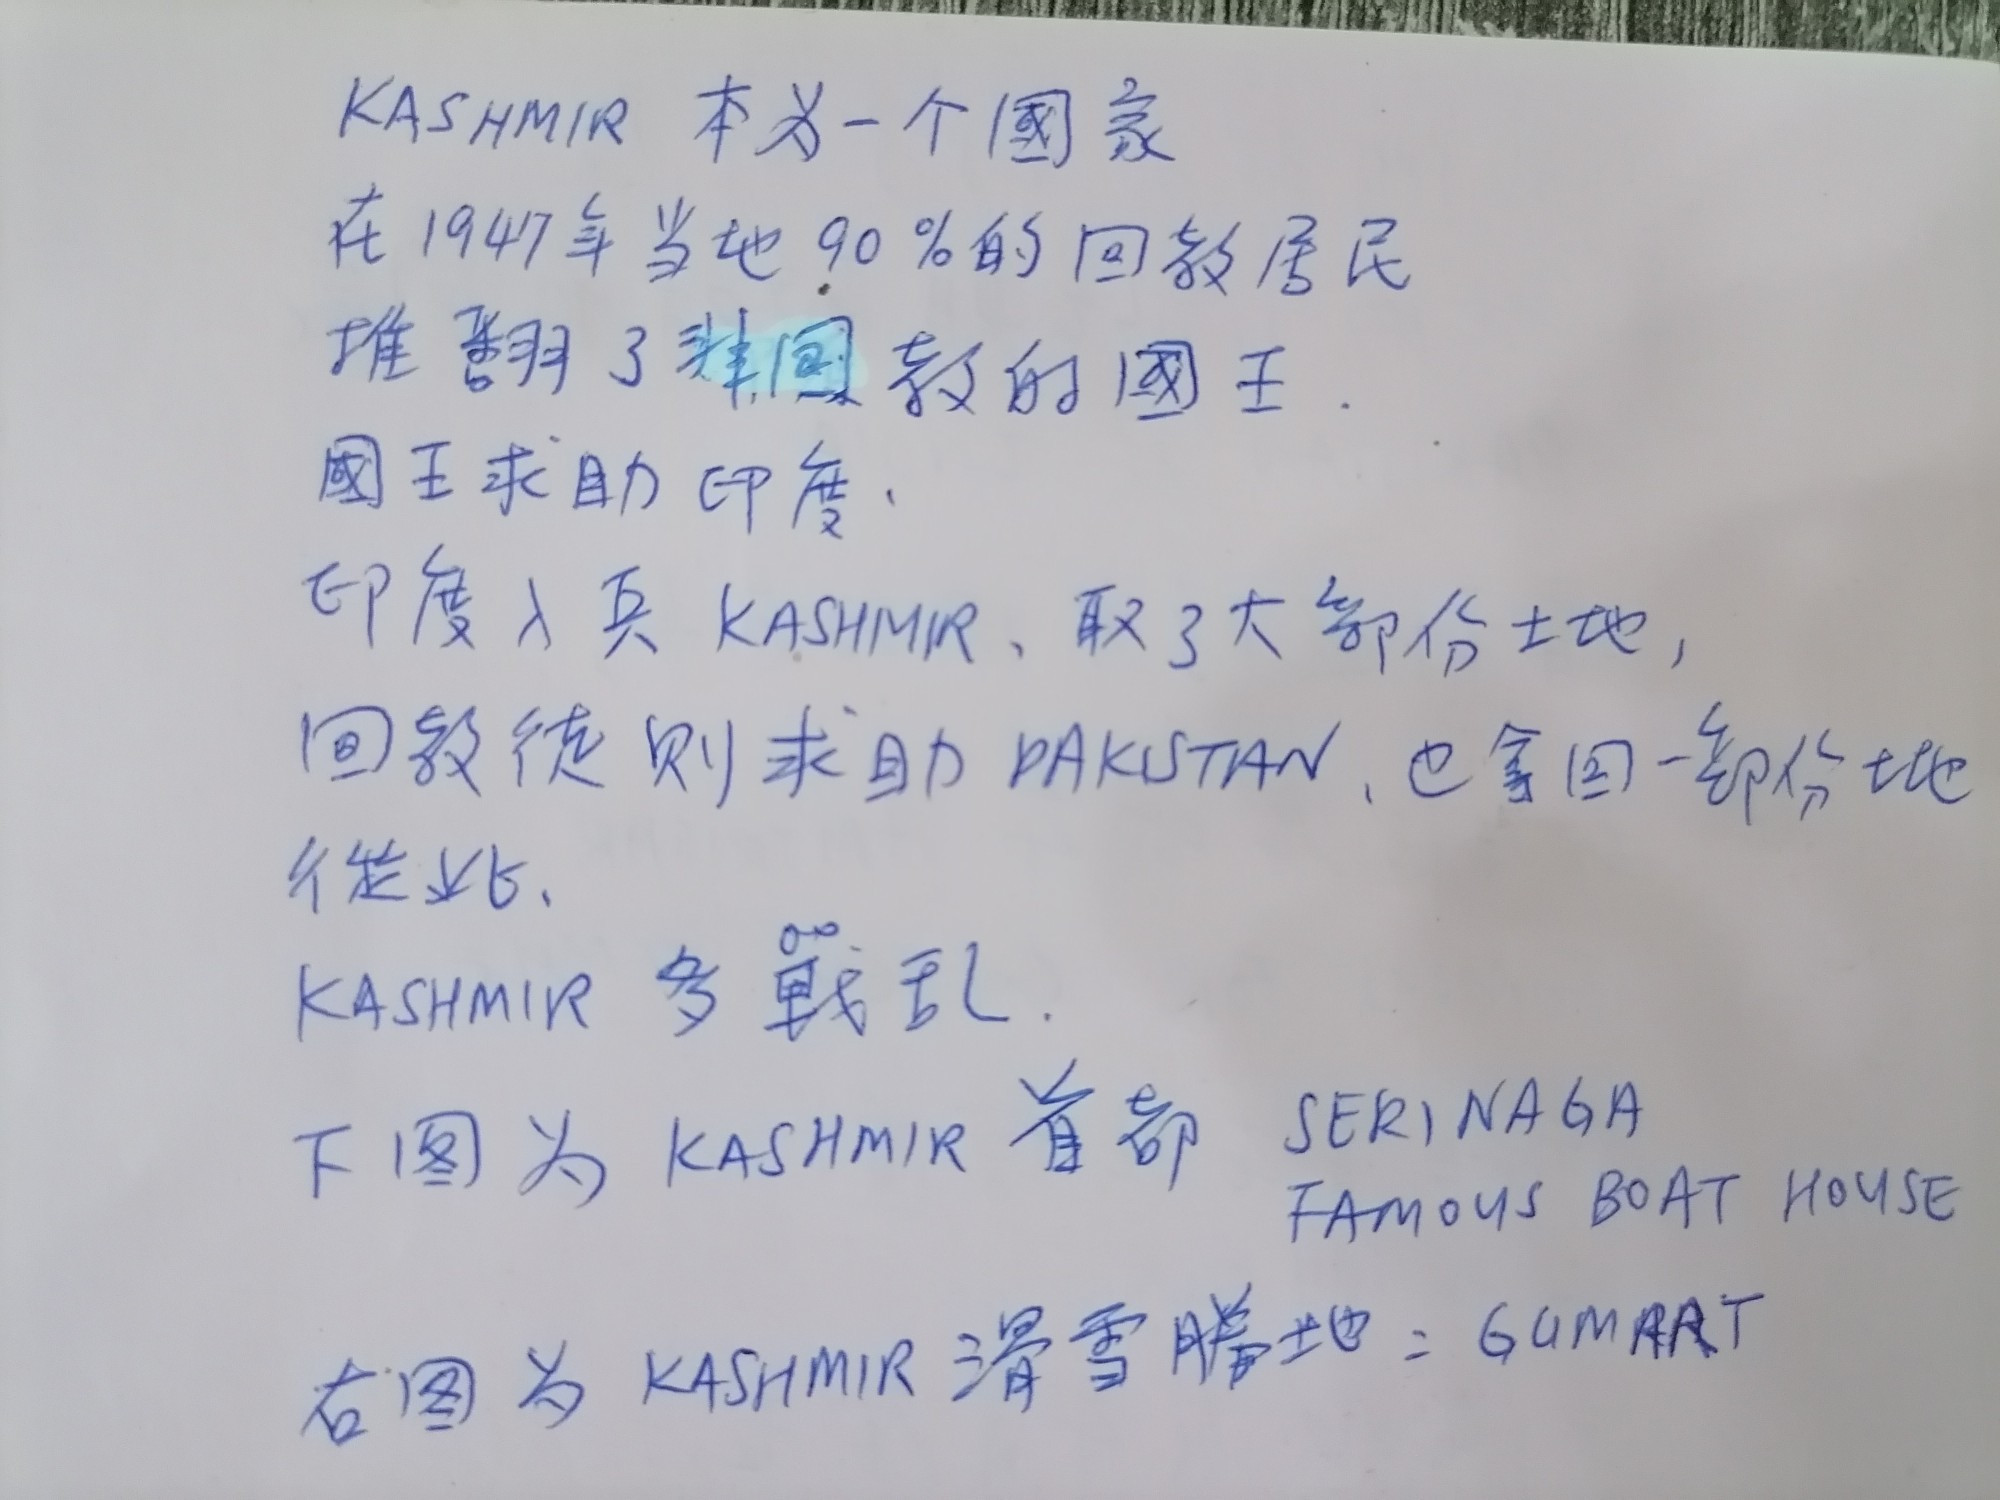 KASHMIR 本为一个國家
在1947年当地90%的回教居民
推翻了非回教的國王.
國王求助印度、
印度入兵KASHMIR、取了大部份土地,
回教徒则求助PAKISTAN、也拿回一部份土地
從此、
KASHMIR 多戰乱.
下图为 KASHMIR 首都 SERINAGA
FAMOUS BOAT HOUSE
右图为 KASHMIR 滑雪勝地: GUMART